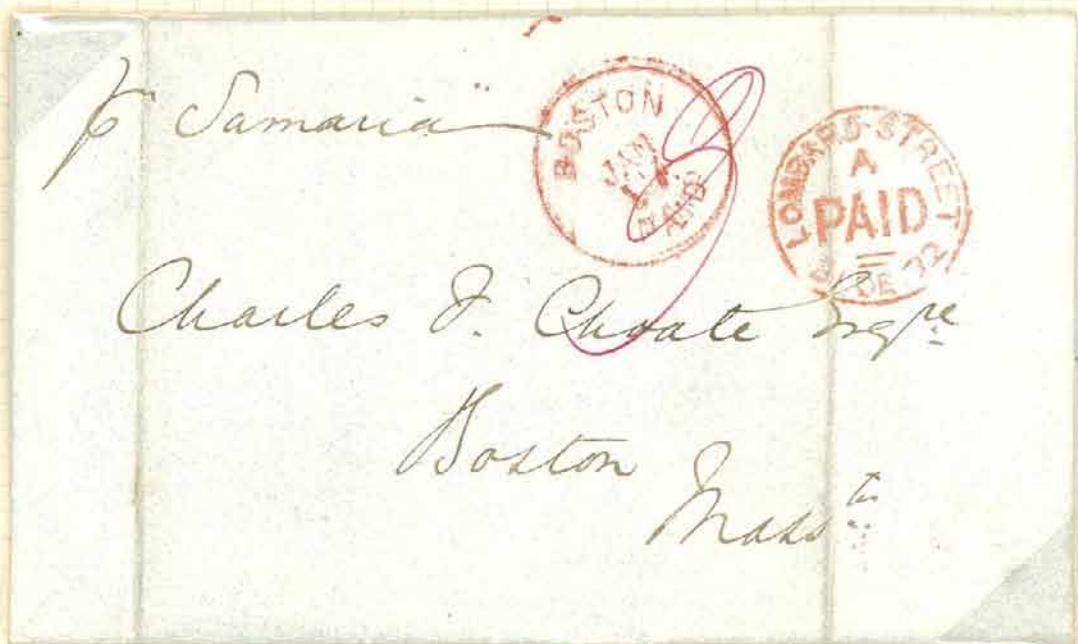 pr Samaria
BOSTON
JAN
PAID
LOMBARD-STREET
A
PAID
DE 72
Charles F. Choate Esqre
Boston
Massts